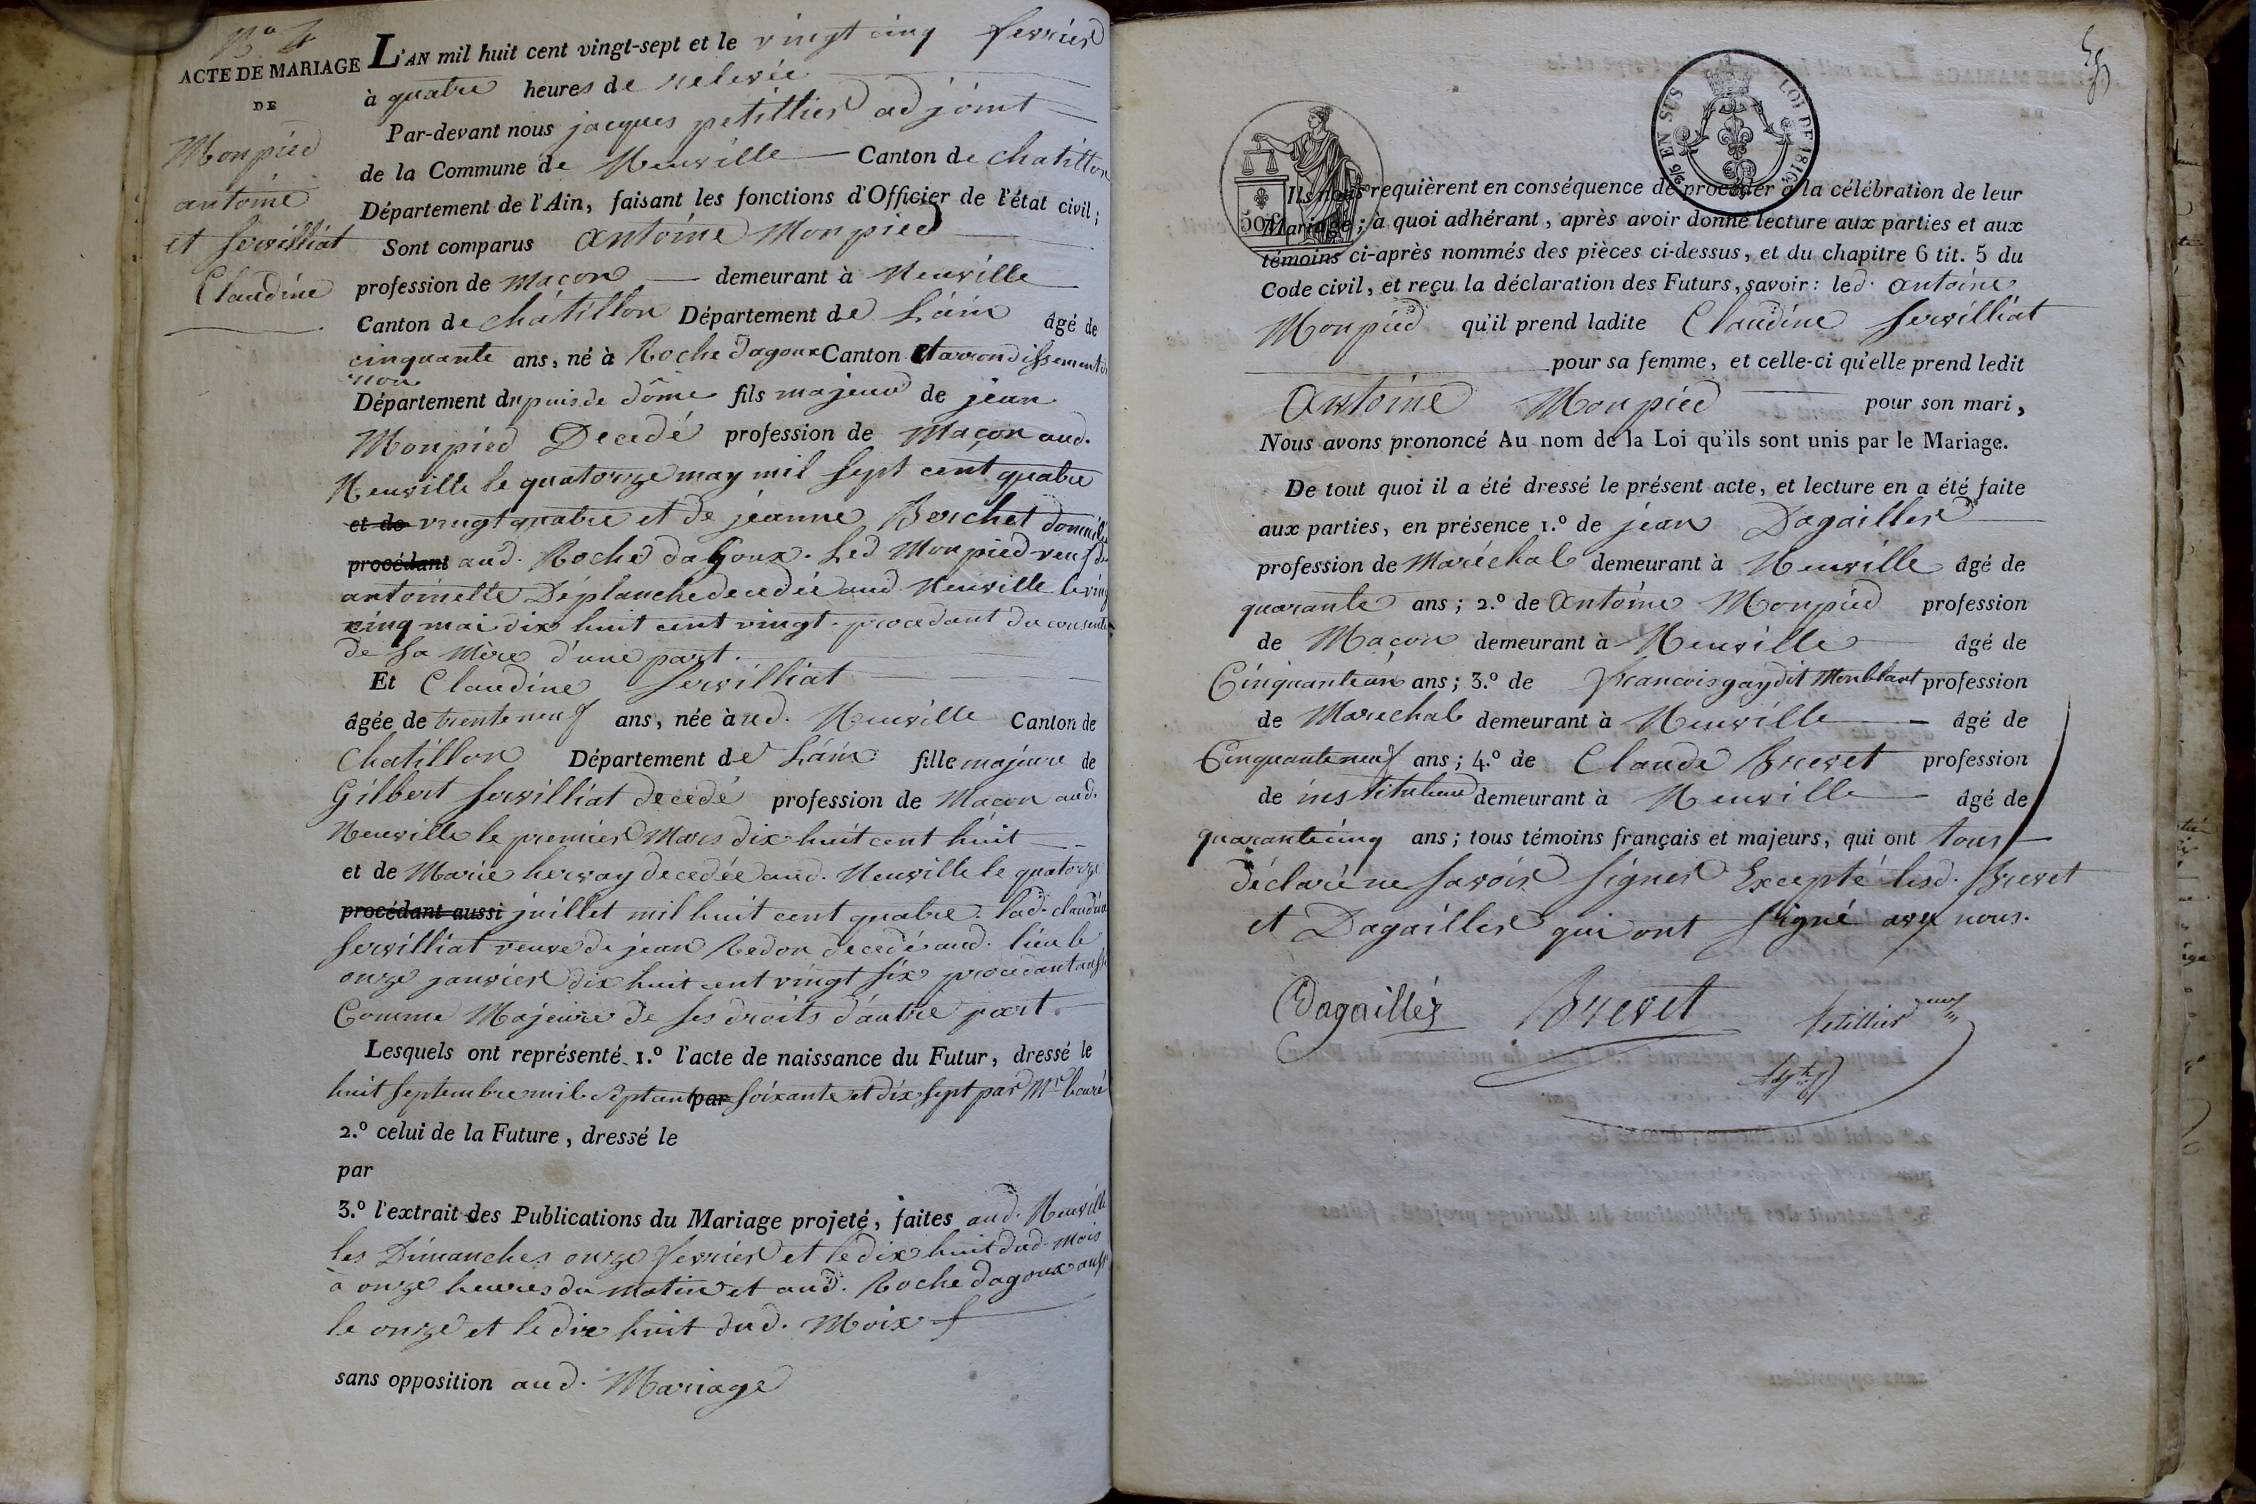 N.º 4
ACTE DE MARIAGE
DE
Monpied
antoine
et Servilliat
Claudine
L'AN mil huit cent vingt-sept et le vingt cinq fevrier
à quatre heures de relevée
Par-devant nous jacques petillier adjoint
de la Commune de Neuville Canton de chatillon
Département de l'Ain, faisant les fonctions d'Officier de l'état civil;
Sont comparus antoine Monpied
profession de maçon demeurant à Neuville
Canton de châtillon Département de L'ain âgé de
cinquante ans, né à Roche dagoux Canton et arrondissement de
riom
Département du puis de dôme fils majeur de jean
Monpied Decedé profession de Maçon aud.
Neuville le quatorze may mil sept cent quatre
et de vingt quatre et de jeanne Berchet domicilié
procédant aud. Roche dagoux. Led Monpied veuf de
antoinette Déplanche decedée aud Neuville le vingt
cinq mai dix huit cent vingt. procedant du consente
de sa Mère d'une part.
Et Claudine Servilliat
âgée de trente neuf ans, née à ud. Neuville Canton de
Chatillon Département de L'ain fille majeure de
Gilbert Servilliat decédé profession de Macon aud.
Neuville le premier Mars dix huit cent huit
et de Marie hervay decedée aud. Neuville le quatorze
procédant aussi juillet mil huit cent quatre. lad. claudine
Servilliat veuve de jean Redon decedé aud. lieu le
onze janvier dix huit cent vingt six procedant aussi
Comme Majeure de ses droits d'autre part.
Lesquels ont représenté 1.º l'acte de naissance du Futur, dressé le
huit septembre mil septcent par soixante et dix sept par Mr. lecuré
2.º celui de la Future, dressé le
par
3.º l'extrait des Publications du Mariage projeté, faites aud. Neuville
les Dimanches onze fevrier et le dix huit dud. mois
à onze heures du matin et aud. Roche dagoux aussi
le onze et le dix huit dud. Mois
sans opposition aud. Mariage
9/6 EN SUS LOI DE 1816
50
Ils nous requièrent en conséquence de procéder à la célébration de leur
Mariage; à quoi adhérant, après avoir donné lecture aux parties et aux
témoins ci-après nommés des pièces ci-dessus, et du chapitre 6 tit. 5 du
Code civil, et reçu la déclaration des Futurs, savoir: led. antoine
Monpied qu'il prend ladite Claudine Servilliat
pour sa femme, et celle-ci qu'elle prend ledit
Antoine Monpied pour son mari,
Nous avons prononcé Au nom de la Loi qu'ils sont unis par le Mariage.
De tout quoi il a été dressé le présent acte, et lecture en a été faite
aux parties, en présence 1.º de jean Dagallier
profession de Maréchal demeurant à Neuville âgé de
quarante ans; 2.º de Antoine Monpied profession
de Maçon demeurant à Neuville âgé de
Cinquante un ans; 3.º de francois gay dit Monblant profession
de Marechal demeurant à Neuville âgé de
Cinquante neuf ans; 4.º de Claude Brevet profession
de instituteur demeurant à Neuville âgé de
quarante cinq ans; tous témoins français et majeurs, qui ont tous
déclaré ne savoir signer Excepté lesd. Brevet
et Dagaillier qui ont signé avec nous.
Dagaillér Brevet Petillier